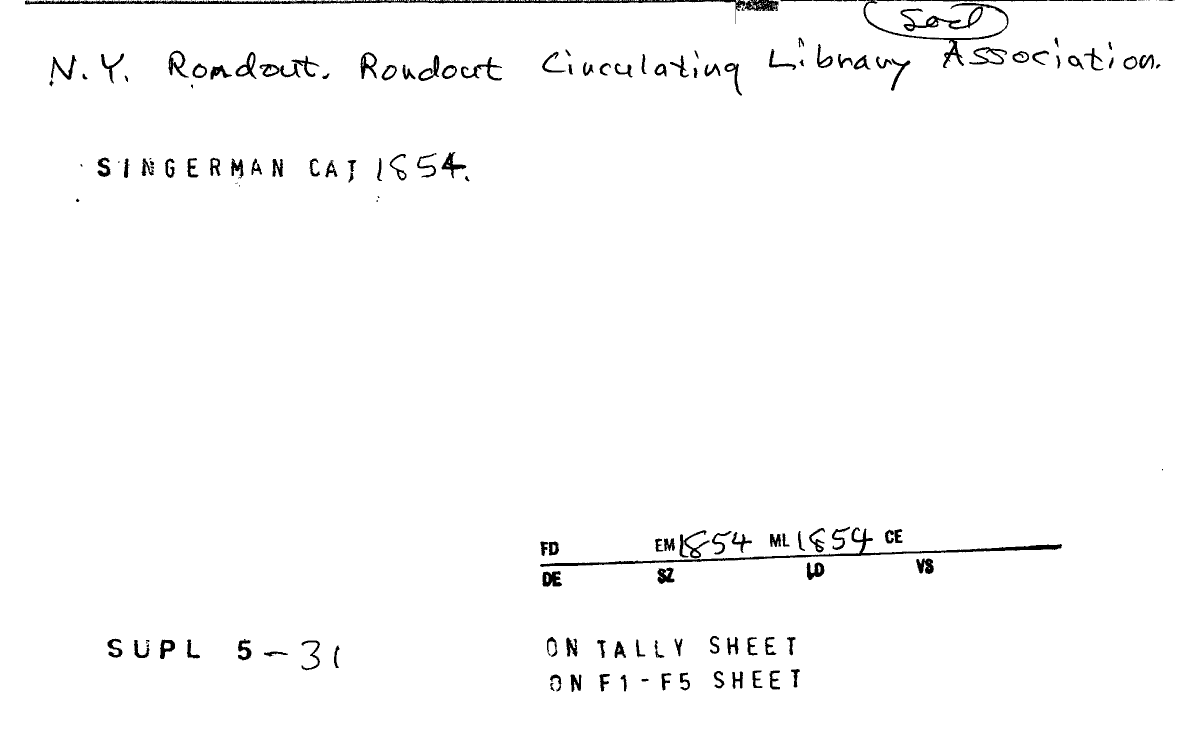 Socl
N.Y. Rondout. Rondout Circulating Library Association.
SINGERMAN CAT 1854.
FD EM 1854 ML 1854 CE
DE SZ LD VS
SUPL 5-31 ON TALLY SHEET
ON F1-F5 SHEET